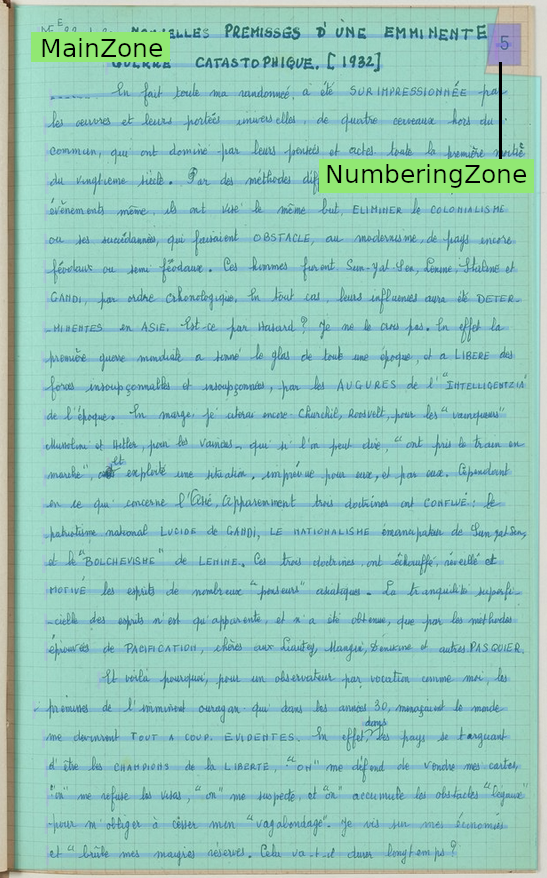 MainZone
5
NOUVELLES PREMISSES D'UNE EMMINENTE
GUERRE CATASTOPHIQUE. [1932]
NumberingZone
........ En fait toute ma randonneé, a été SURIMPRESSIONNÉE par
les œuvres et leurs portées universelles, de quatre cerveaux hors du
commun, qui ont dominé par leurs pensées et actes, toute la première moitié
du vingtième siècle. Par des méthodes
évènements même, ils ont visé le même but, ELIMINER le COLONIALISME
ou ses succédannés, qui faisaient OBSTACLE, au modernisme, de pays encore
féodaux ou semi féodaux. Ces hommes furent Sun-Yat-Sen, Lénine, Staline et
GANDI, par ordre Crhonologique, En tout cas, leurs influences aura été DETER-
-MINENTES en ASIE. Est-ce par Hasard? Je ne le crois pas. En effet la
première guerre mondiale a sonné le glas de toute une époque, et a LIBERE des
forces insoupçonnables et insoupçonnées, par les AUGURES de l'"INTELLIGENTZIA"
de l'époque. En marge, je citerai encore Churchil, Roosvelt, pour les "vainqueurs"
Mussolini et Hitler, pour les vaincus, qui si l'on peut dire, "ont pris le train en
marche", et exploité une situation, imprévue pour eux, et par eux. Cependant
en ce qui concerne l'Asie, apparemment trois doctrines ont CONFLUÉ: Le
patriotisme national LUCIDE de GANDI, LE NATIONALISME émancipateur de Sun yat Sen,
et le "BOLCHEVISME" de LENINE. Ces trois doctrines, ont échauffé, réveillé et
MOTIVÉ les esprits de nombreux "penseurs" asiatiques. La tranquilité superfi-
-cielle des esprits n'est qu'apparente, et n'a été obtenue, que par les méthodes
éprouvées de PACIFICATION, chères aux Liautey, Mangin, Dénikine et autres PASQUIER.
Et voilà pourquoi, pour un observateur par vocation comme moi, les
prémices de l'imminent ouragan qui dans les années 30, menaçaient le monde
me devinrent TOUT A COUP EVIDENTES. En effet, dans les pays se targuant
d'être les CHAMPIONS de la LIBERTÉ, "ON" me défend de vendre mes cartes,
"on" me refuse les visas, "on" me suspecte, et "on" accumule les obstacles "légaux"
pour m'obliger à cesser mon "vagabondage". Je vis sur mes économies
et "brûle mes maigres réserves. Cela va-t-il durer longtemps?